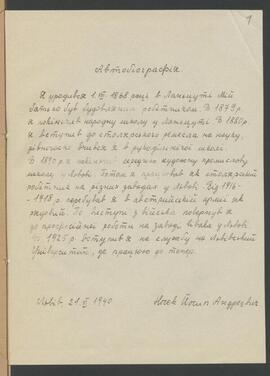 1
Автобіографія
Я уродився 1.III 1868 році в Ланьцуті Мій
батько був будовляним робітником. В 1879 р.
я покінчив народну школу у Ланьцуті. В 1880 р.
я вступив до столярського ремесла на науку,
рівночасно вчився я в рукодільній школі.
В 1890 р. я покінчив середню художну промислову
школу у Львові. Потім я працював як столярський
робітник на різних заводах у Львові. Від 1914-
-1918 р. перебував я в австрійській армії як
рядовий. По виступі з війська повернув я
до професійної роботи на завод у Львові.
1925 р. вступив я на службу на Львівський
Університет, де працюю до тепер.
Львів, 21.X 1940
Йосип Андреєвич